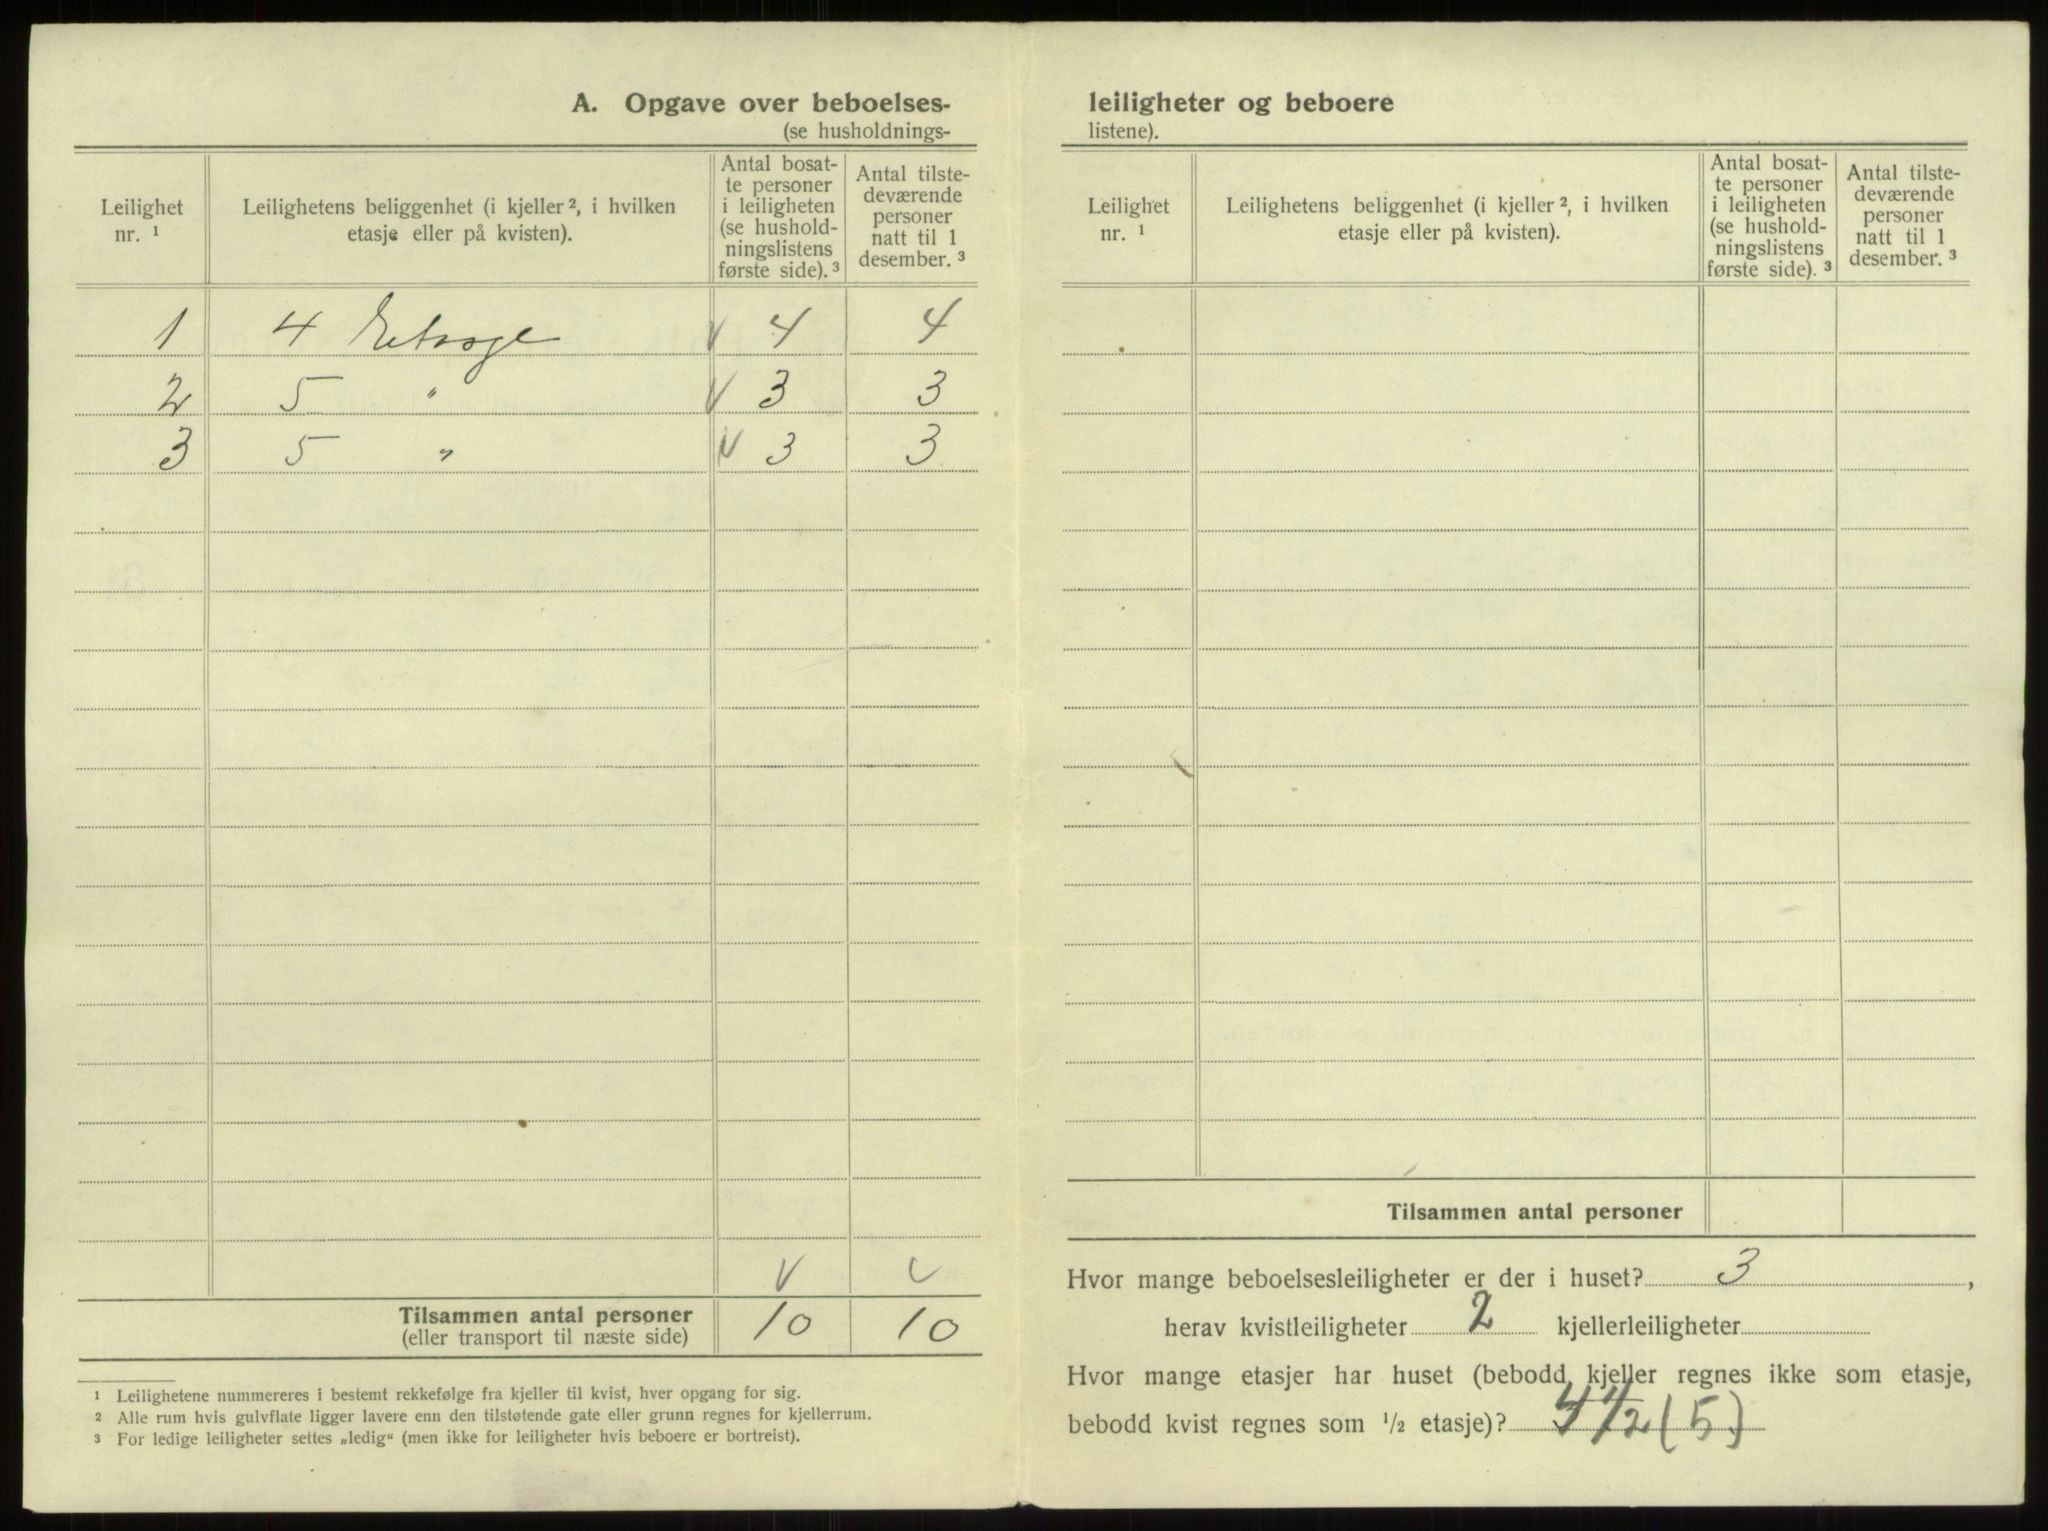 A. Opgave over beboelses-
(se husholdnings-
Leilighet nr. 1
Leilighetens beliggenhet (i kjeller 2, i hvilken
etasje eller på kvisten).
Antal bosat-
te personer
i leiligheten
(se hushold-
ningslistens
første side). 3
Antal tilste-
deværende
personer
natt til 1
desember. 3
1 4 Etasje V 4 4
2 5 " V 3 3
3 5 " V 3 3
V V
Tilsammen antal personer 10 10
(eller transport til næste side)
1 Leilighetene nummereres i bestemt rekkefølge fra kjeller til kvist, hver opgang for sig.
2 Alle rum hvis gulvflate ligger lavere enn den tilstøtende gate eller grunn regnes for kjellerrum.
3 For ledige leiligheter settes „ledig“ (men ikke for leiligheter hvis beboere er bortreist).
leiligheter og beboere
listene).
Leilighet nr. 1
Leilighetens beliggenhet (i kjeller 2, i hvilken
etasje eller på kvisten).
Antal bosat-
te personer
i leiligheten
(se hushold-
ningslistens
første side). 3
Antal tilste-
deværende
personer
natt til 1
desember. 3
Tilsammen antal personer
Hvor mange beboelsesleiligheter er der i huset? 3 ,
herav kvistleiligheter 2 kjellerleiligheter
Hvor mange etasjer har huset (bebodd kjeller regnes ikke som etasje,
bebodd kvist regnes som 1/2 etasje)? 4 1/2 (5)